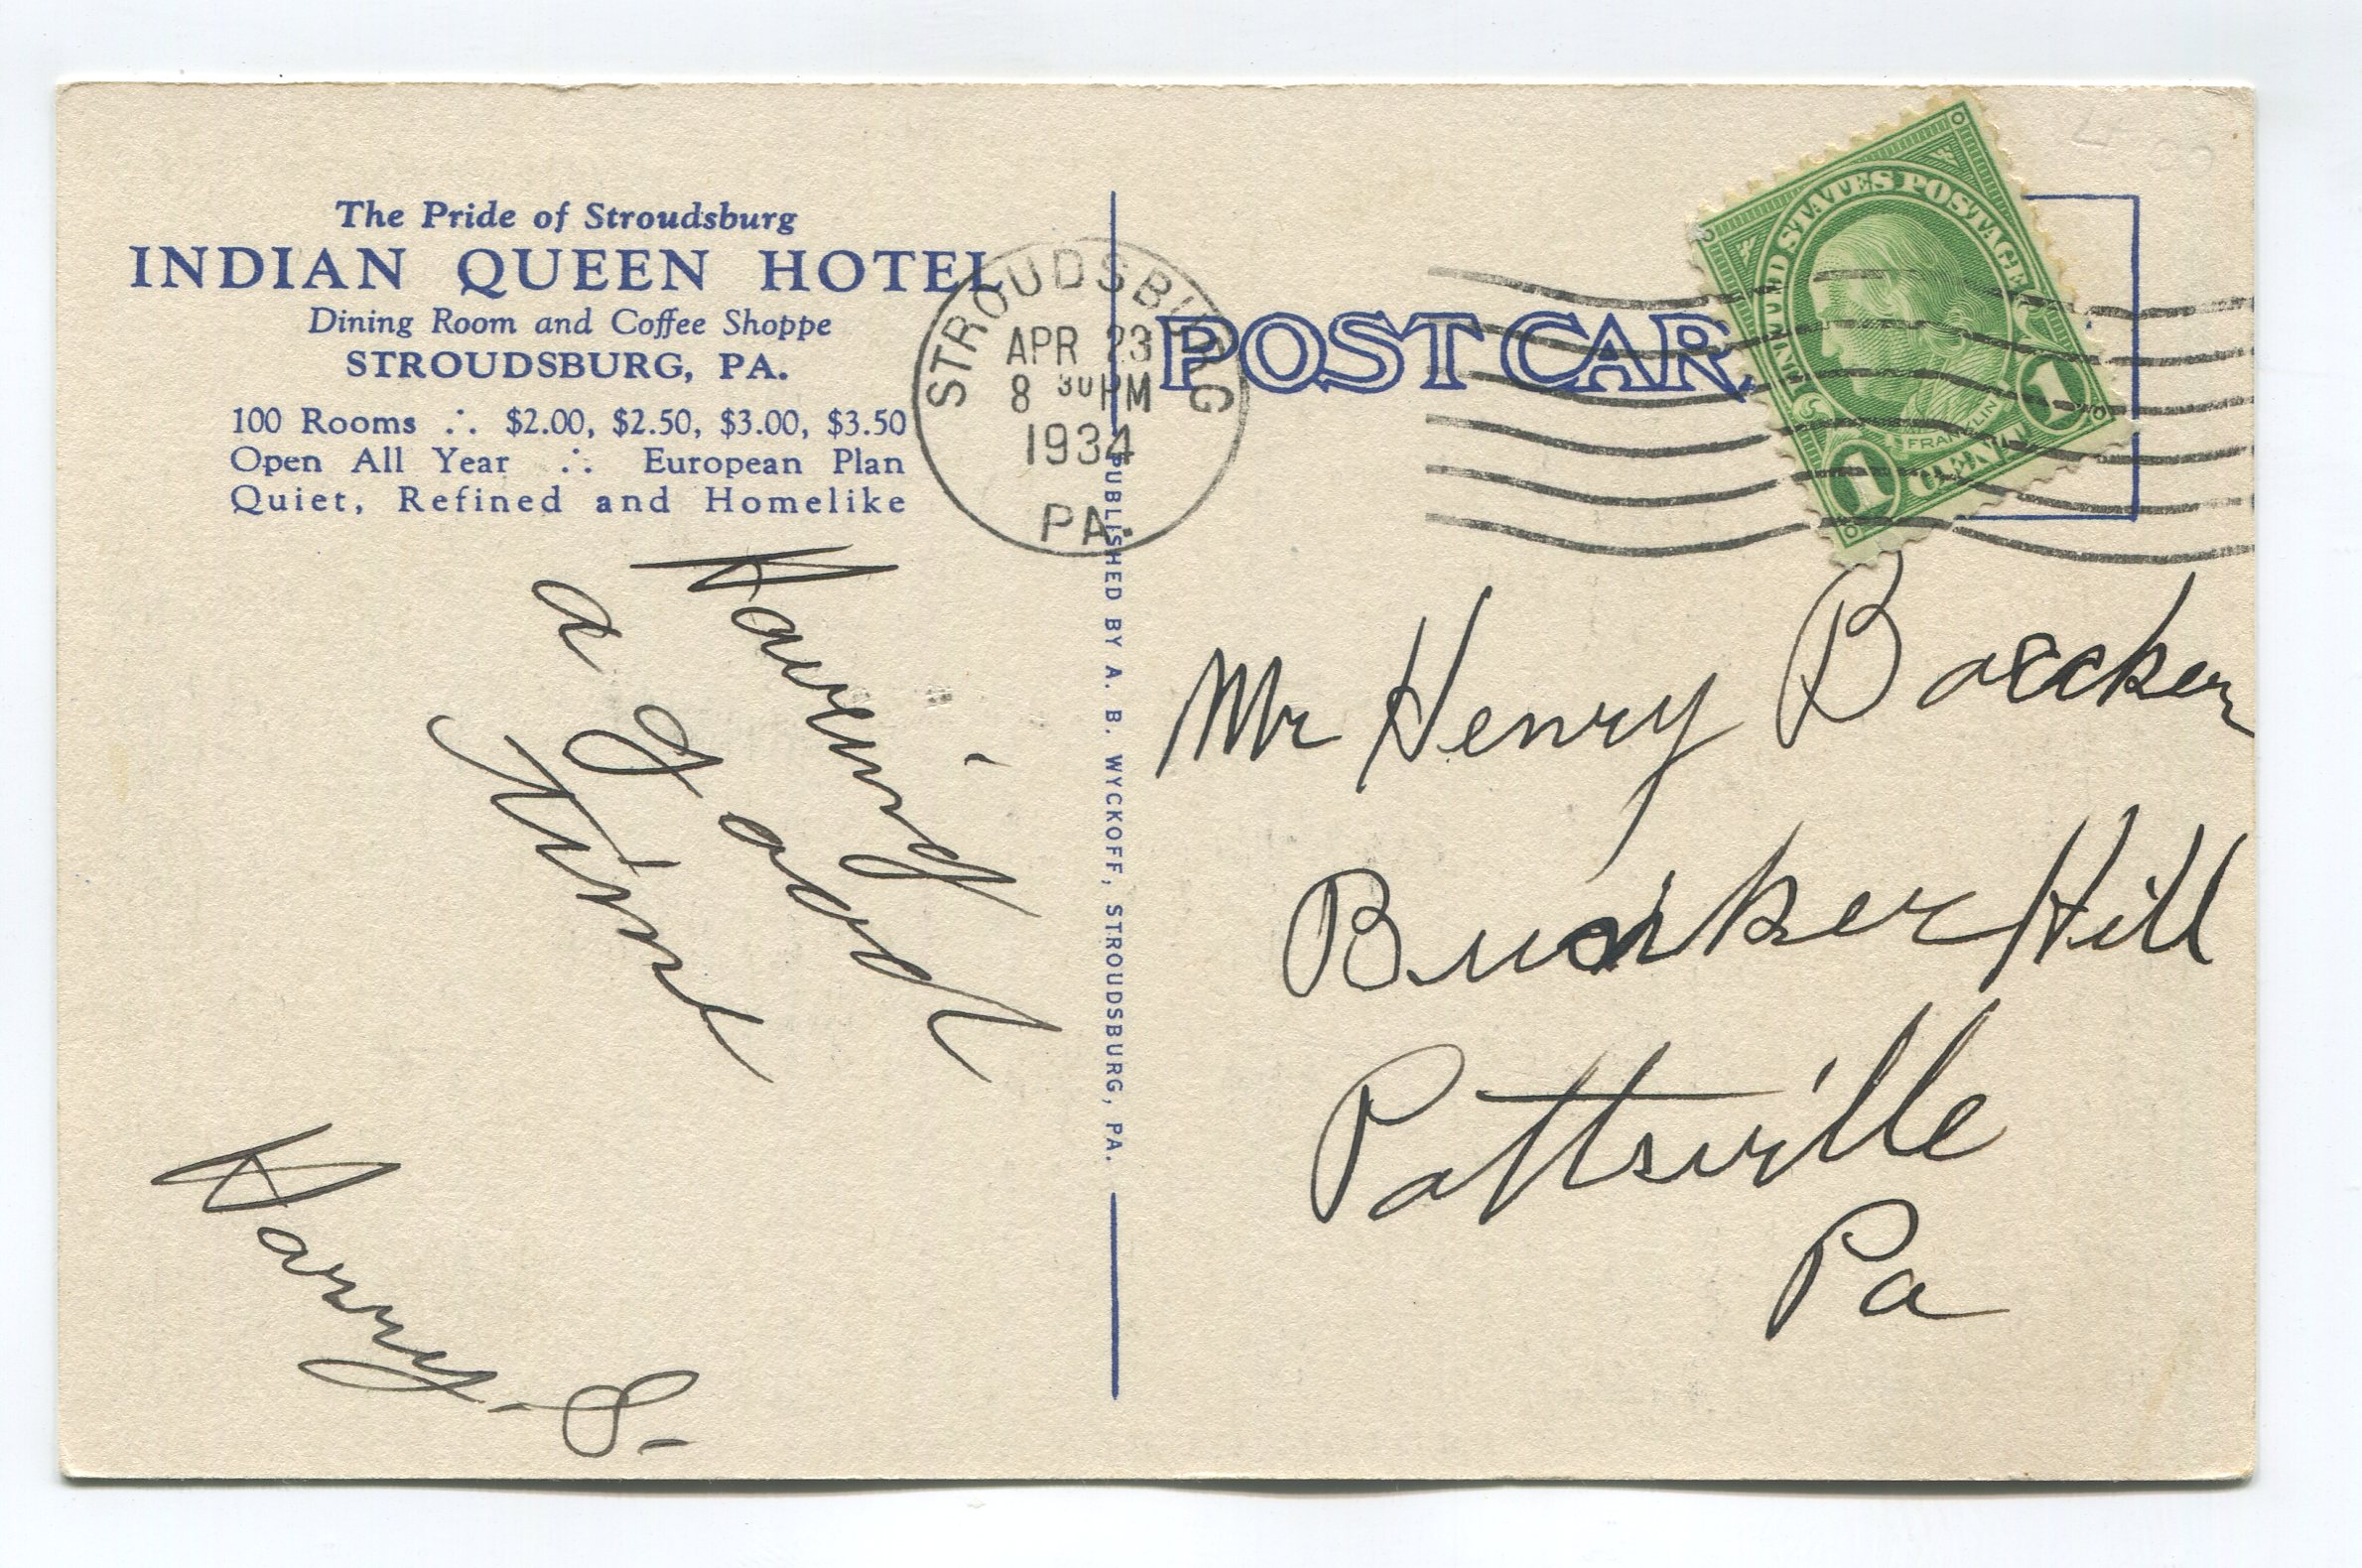 The Pride of Stroudsburg
INDIAN QUEEN HOTEL
Dining Room and Coffee Shoppe
STROUDSBURG, PA.
100 Rooms ∴ $2.00, $2.50, $3.00, $3.50
Open All Year ∴ European Plan
Quiet, Refined and Homelike
STROUDSBURG
APR 23
8 30 PM
1934
PA.
POST CAR
UNITED STATES POSTAGE
FRANKLIN
1 CENT 1
PUBLISHED BY A. B. WYCKOFF, STROUDSBURG, PA.
Having
a Good
Time
Harry. S-
Mr Henry
Bunker Hill
Pottsville
Pa